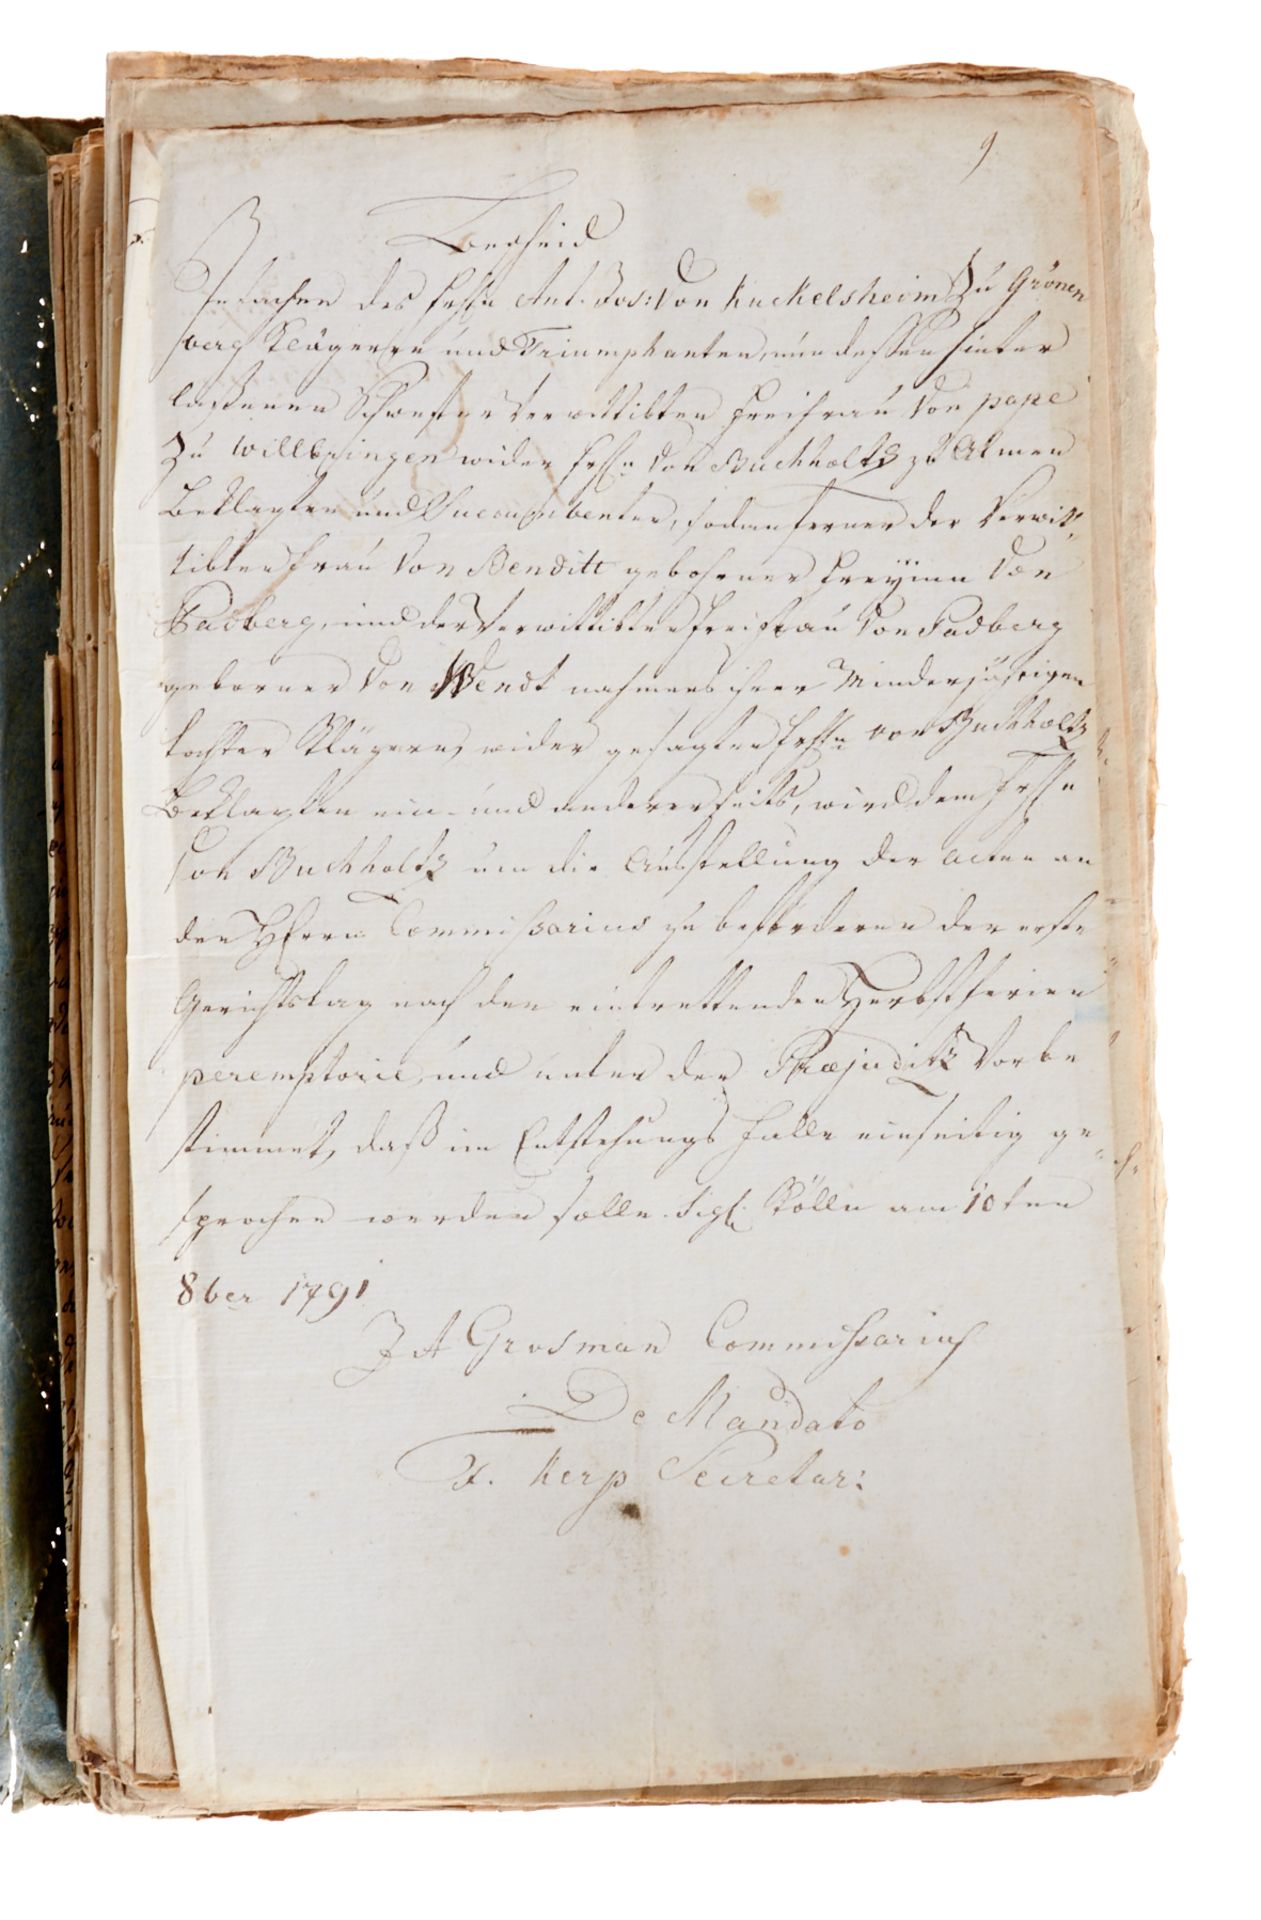 9
Bescheid
In sachen des Frhn Ant. Jos: von Kuckelsheim Zu Grönen
berg Klägeren und Triumphanten, nun dessen hinter
lassenen Schwester verwittibten Freifrau von pape
Zu Willbringen wider Frhn von Buchholtz zu Almen
Beklagten und Succumbenten, sodan ferner der Verwit,
tibten Frau von Benditt gebohrner Freyinn von
Padberg, und der Verwittibten Freifrau von Padberg
geborner von Wendt nahmens ihrer Minderjährigen
tochter Klägern, wider gesagten Frhn von Buchholtz
Beklagten ein- und andererseits, wird dem Frhn
von Buchholtz um die Ausstellung der Acten an
den Hherrn Commissarius zu beförderen der erste
Gerichtstag nach den eintrettenden Herbstferien
peremptorie, und unter dem Præjuditz vorbe
stimmet, daß im Entstehungs Falle einseitig ge-
sprochen werden solle. Sigl. Kölln am 10ten
8ber 1791
J A Grosman Commissarius
De Mandato
F. Kerp Secretar: